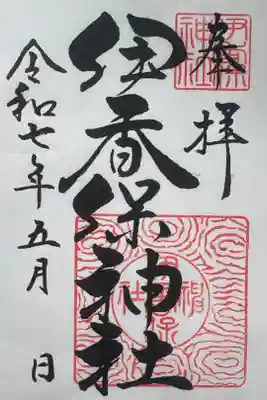 奉拝
伊香保神社
令和七年五月 日